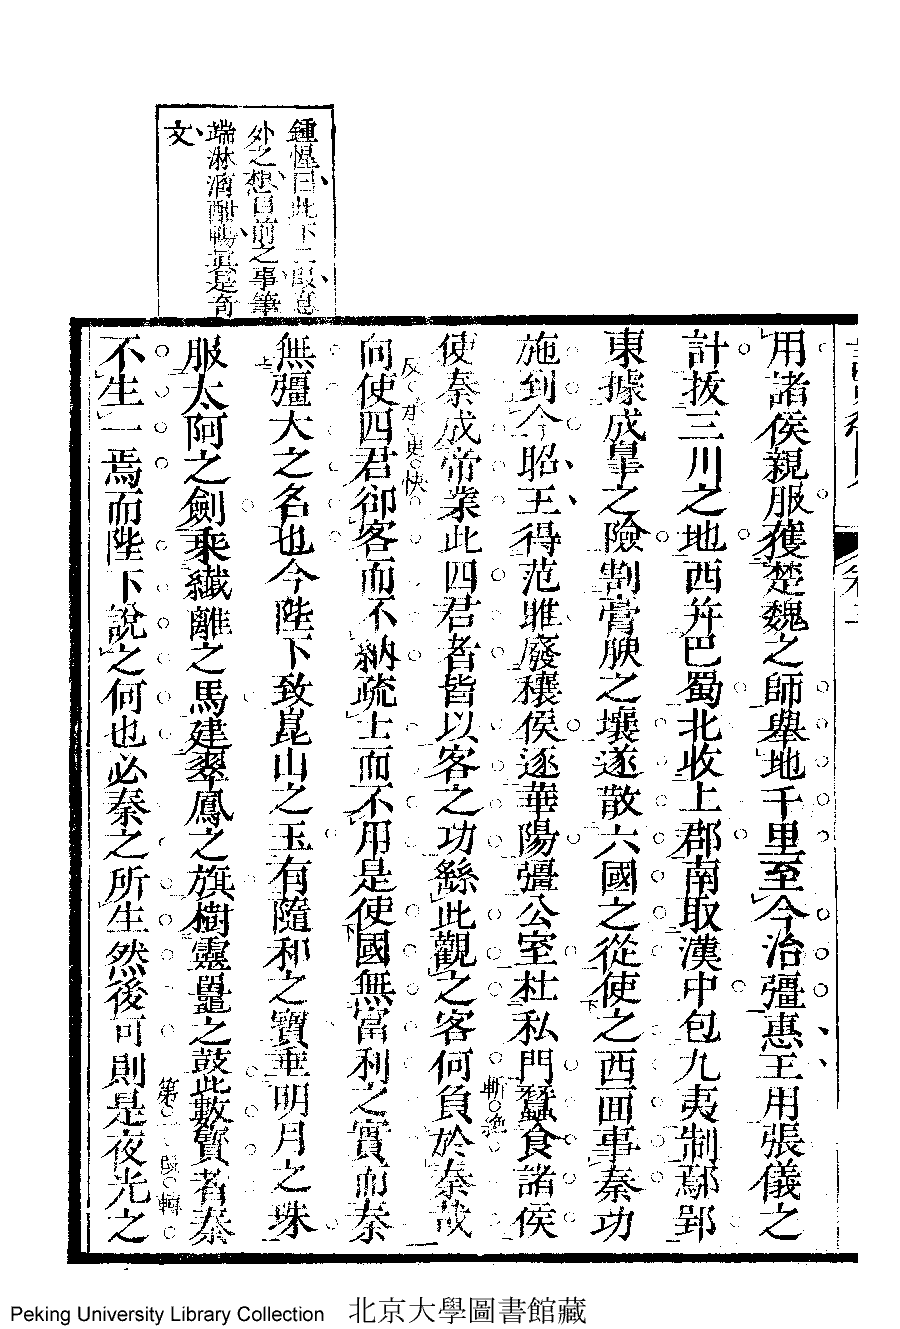 鍾惺曰此下二段意
外之想目前之事筆
端淋漓酣暢真是奇
文
用諸侯親服獲楚魏之師舉地千里至今治彊惠王用張儀之
計拔三川之地西幷巴蜀北收上郡南取漢中包九夷制鄢郢
東據成皐之險割膏腴之壤遂散六國之從使之西面事秦功
施到今昭王得范雎廢穰侯逐華陽彊公室杜私門蠶食諸侯
斬絶
使秦成帝業此四君者皆以客之功繇此觀之客何負於秦哉
反求更快
向使四君卻客而不納疏士而不用是使國無富利之實而秦
無彊大之名也今陛下致崑山之玉有隨和之寶垂明月之珠
服太阿之劍乘纖離之馬建翠鳳之旗樹靈鼉之鼓此數寶者秦
第一段輯
不生一焉而陛下說之何也必秦之所生然後可則是夜光之
Peking University Library Collection 北京大學圖書館藏